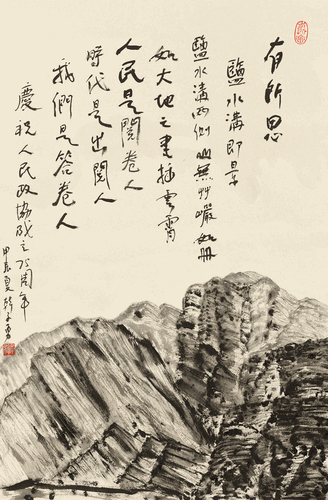 有所思
鹽水溝即景
鹽水溝兩側山無艸巖如冊
如大地之書插雲霄
人民是閱卷人
時代是出閱人
我們是答卷人
慶祝人民政協成立75周年
甲辰夏